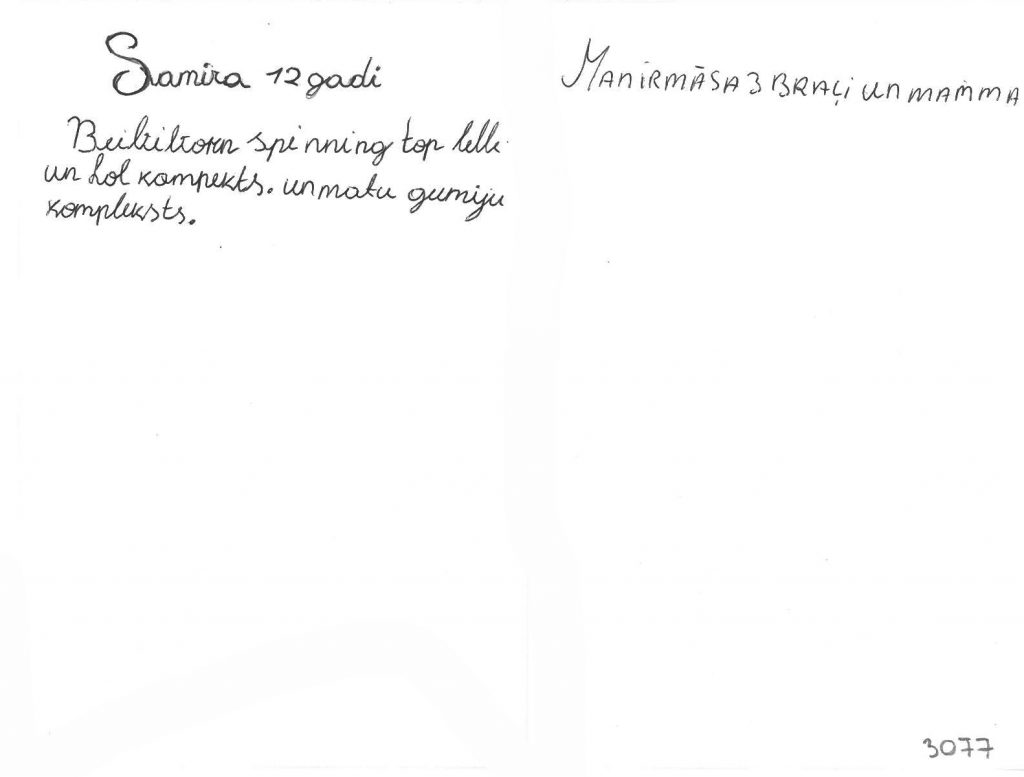 Samira 12 gadi
spinning top lelle
un Lol kompekts. un matu gumiju
kompleksts.
MAN IR MĀSA 3 BRAĻI UN MAMMA
3077